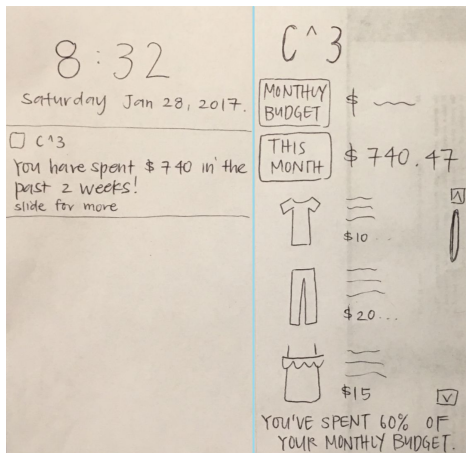 8:32
Saturday Jan 28, 2017.
C^3
You have spent $740 in the
past 2 weeks!
slide for more
C^3
MONTHLY
BUDGET
$
THIS
MONTH
$740.47
$10..
$20...
$15
YOU'VE SPENT 60% OF
YOUR MONTHLY BUDGET.